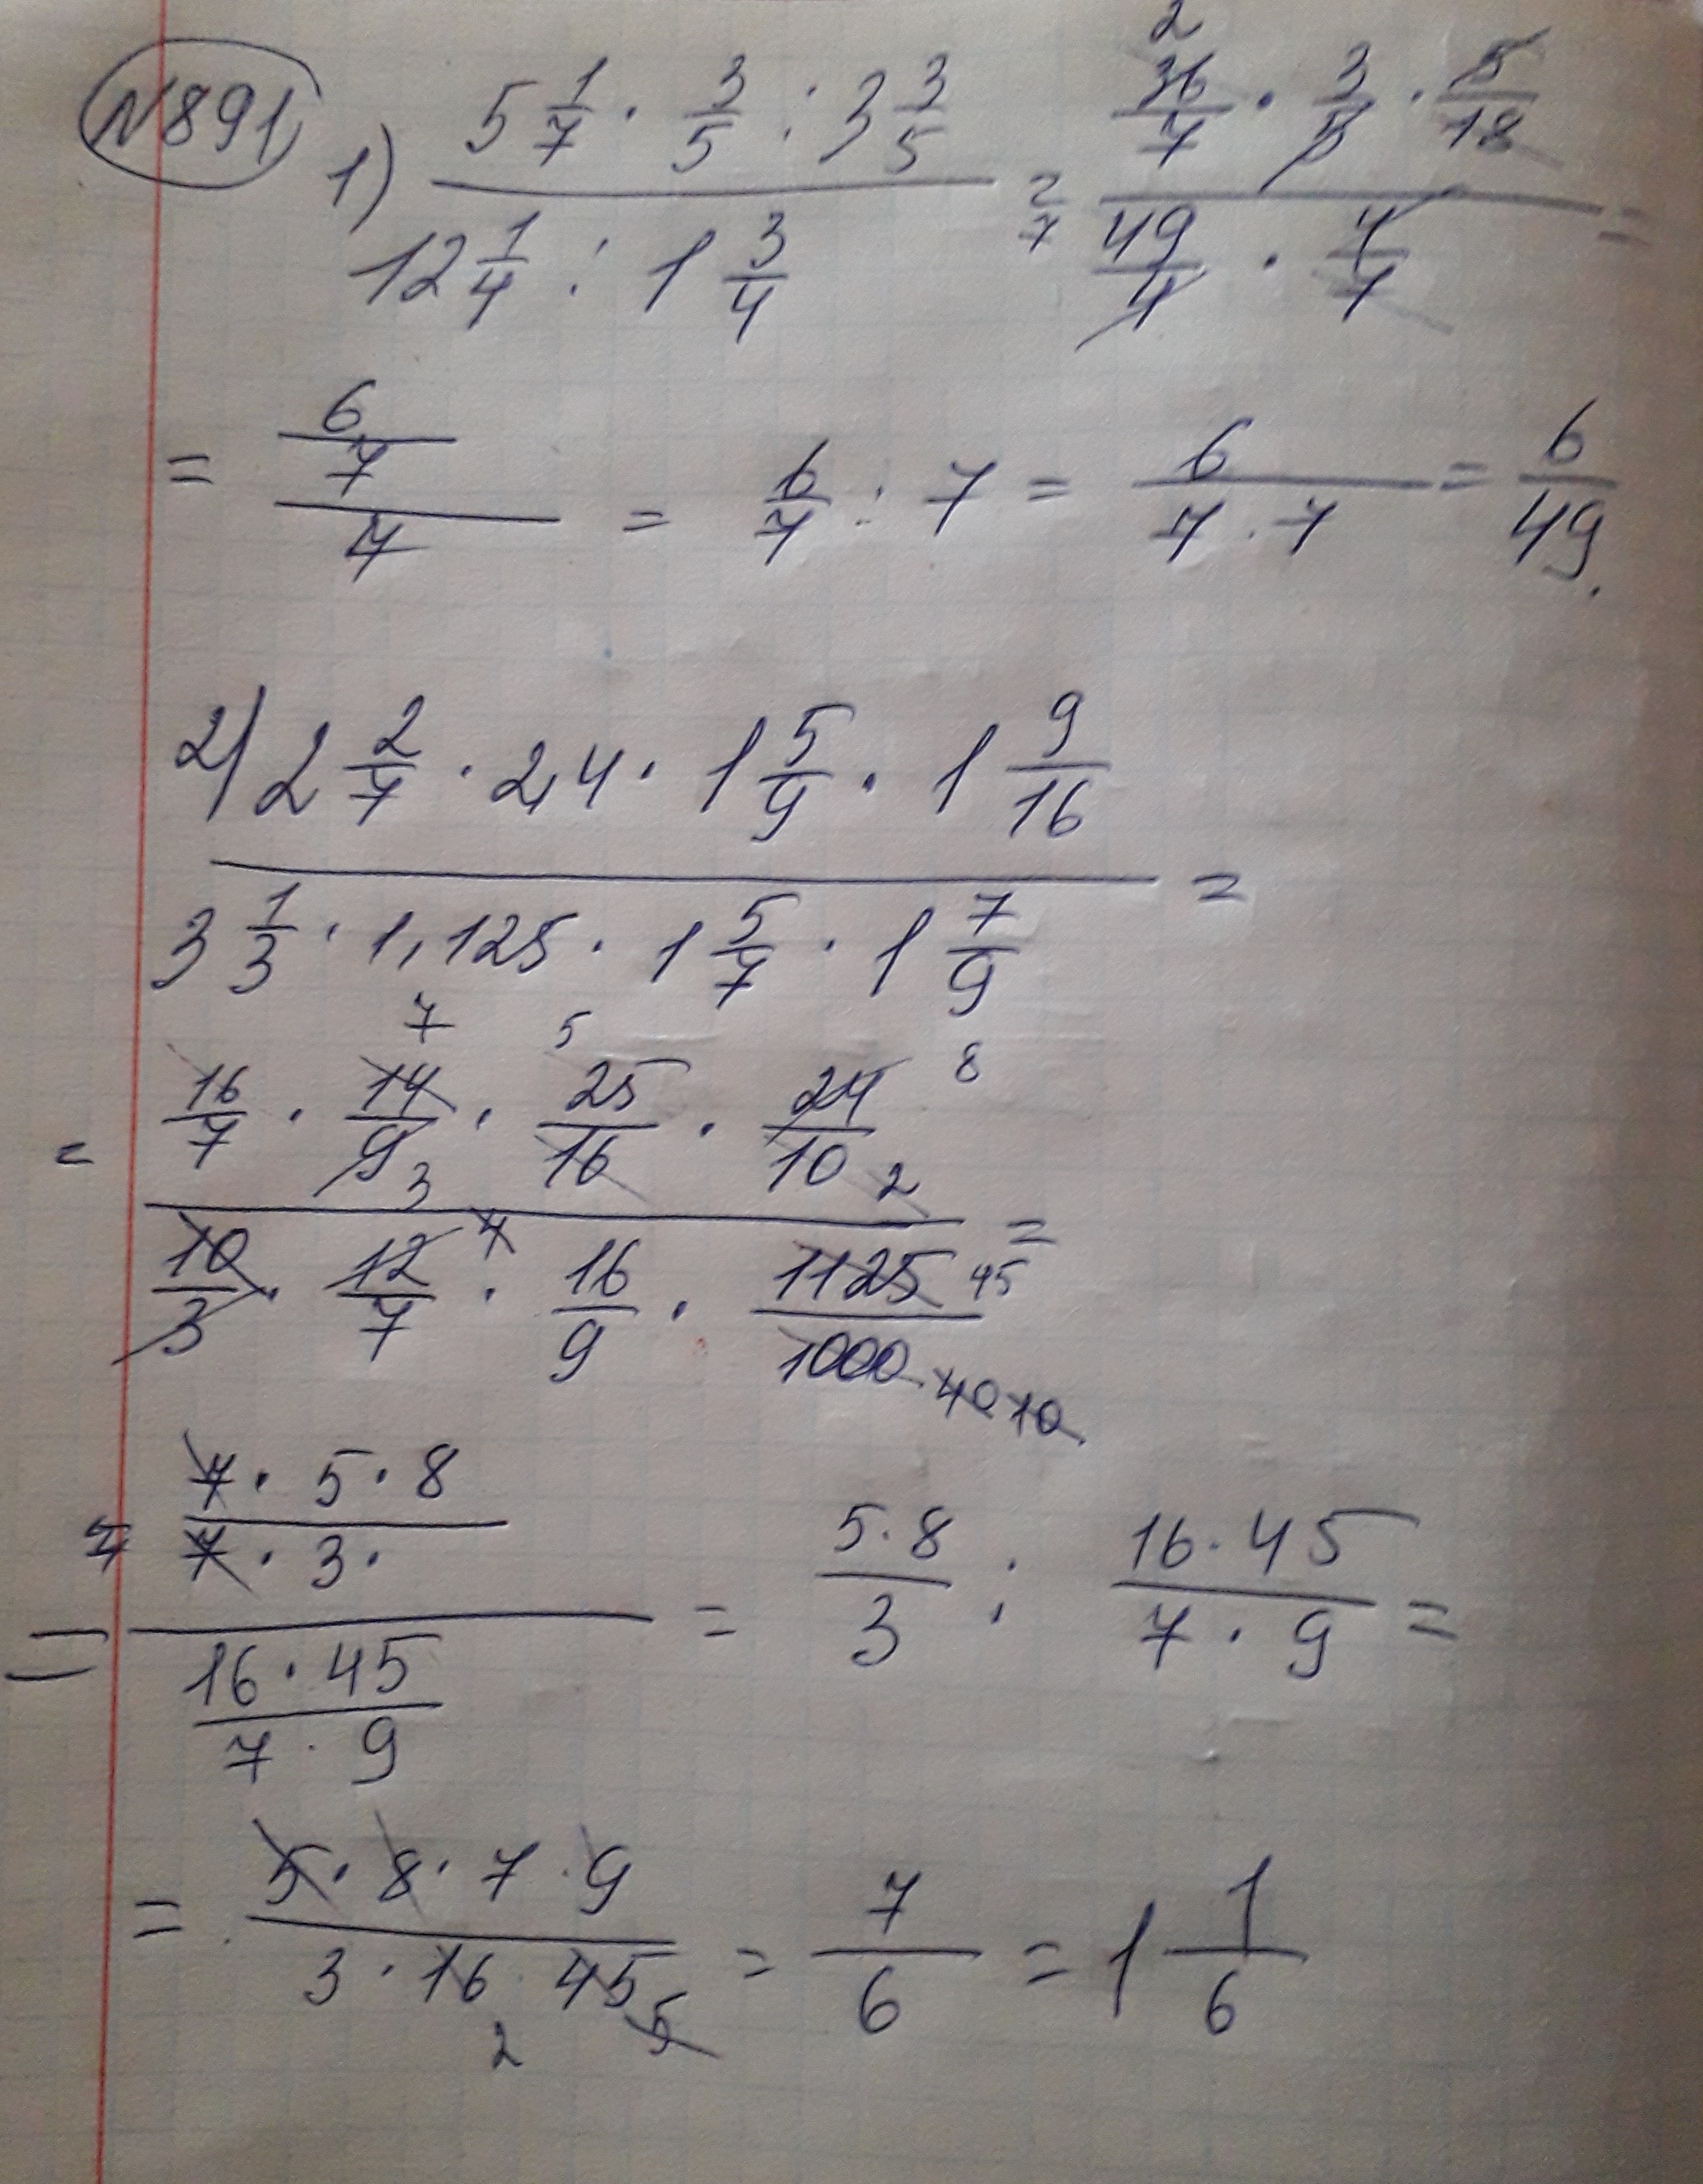 N891
1) (5 1/7 · 3/5 : 3 3/5) / (12 1/4 : 1 3/4) = (36/7 · 3/5 · 5/18) / (49/4 · 4/7) =
= (6/7) / 7 = 6/7 : 7 = 6/(7 · 7) = 6/49.
2) (2 2/7 · 2,4 · 1 5/9 · 1 9/16) / (3 1/3 · 1,125 · 1 5/7 · 1 7/9) =
= (16/7 · 14/9 · 25/16 · 24/10) / (10/3 · 12/7 · 16/9 · 1125/1000) =
= ((7 · 5 · 8) / (7 · 3 ·)) / ((16 · 45) / (7 · 9)) = (5 · 8)/3 : (16 · 45)/(7 · 9) =
= (5 · 8 · 7 · 9) / (3 · 16 · 45) = 7/6 = 1 1/6